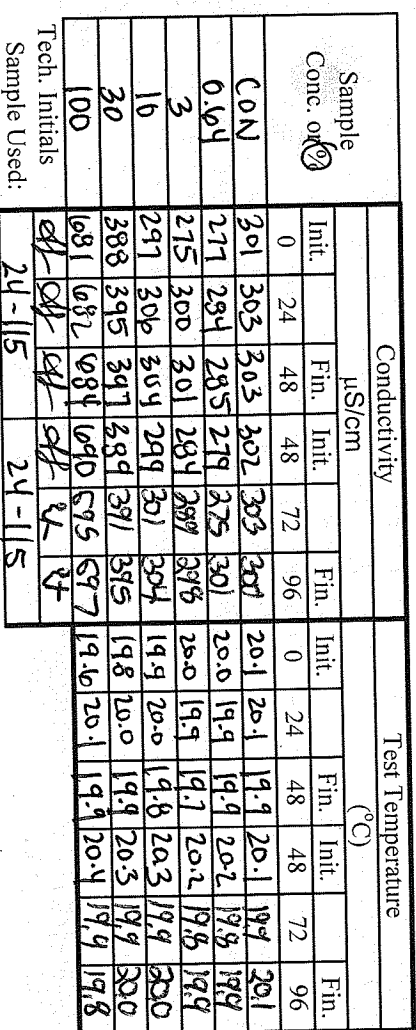 Sample Conductivity Test Temperature
Conc. or % µS/cm (°C)
Init. Fin. Init. Fin. Init. Fin. Init. Fin.
0 24 48 48 72 96 0 24 48 48 72 96
CON 301 303 303 302 303 300 20.1 20.1 19.9 20.1 19.9 20.1
0.64 277 284 285 279 275 301 20.0 19.9 19.9 20.2 19.8 19.9
3 275 300 301 284 298 20.0 19.9 19.7 20.2 19.8 19.9
10 297 306 304 299 301 304 19.9 20.0 19.8 20.3 19.9 20.0
30 388 395 397 389 391 395 19.8 20.0 19.9 20.3 19.9 20.0
100 681 682 684 690 695 697 19.6 20.1 19.9 20.4 19.9 19.8
Tech. Initials
Sample Used: 24-115 24-115